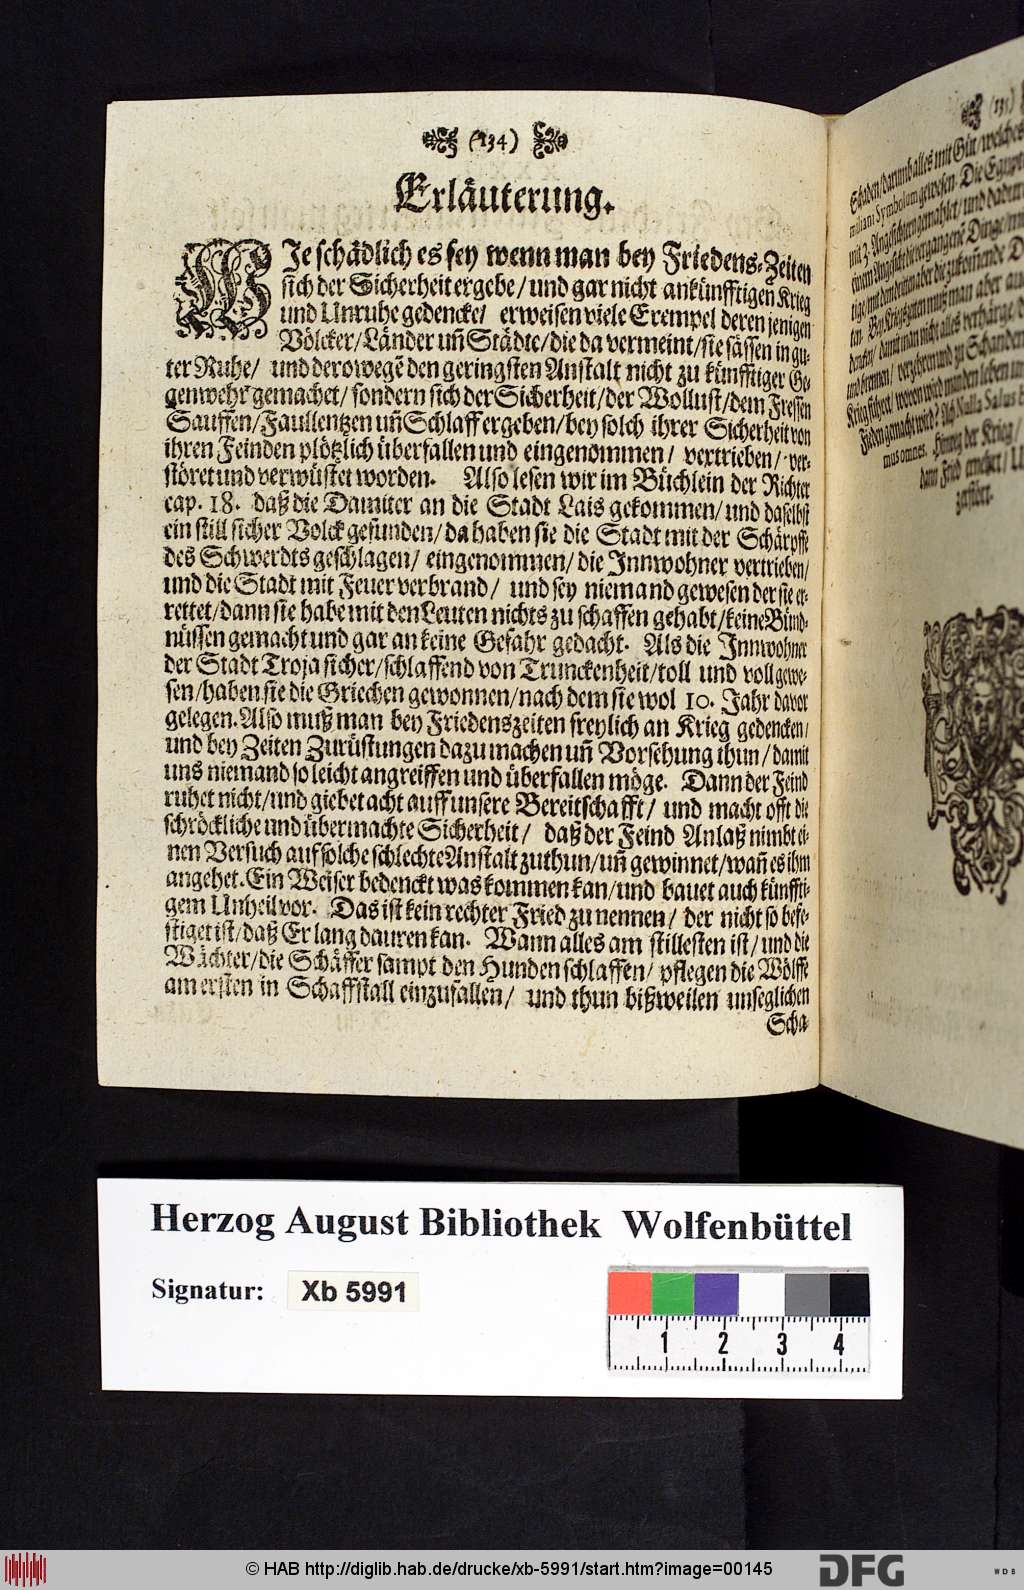 (134)
Erläuterung.
WIe schädlich es sey wenn man bey Friedens-Zeiten
sich der Sicherheit ergebe/ und gar nicht ankünfftigen Krieg
und Unruhe gedencke/ erweisen viele Exempel deren jenigen
Völcker/ Länder uñ Städte/ die da vermeint/ sie sässen in gu-
ter Ruhe/ und derowegē den geringsten Anstalt nicht zu künfftiger Ge-
genwehr gemachet/ sondern sich der Sicherheit/ der Wollust/ dem Fressen
Sauffen/ Faullentzen uñ Schlaff ergeben/ bey solch ihrer Sicherheit von
ihren Feinden plötzlich überfallen und eingenommen/ vertrieben/ ver-
störet und verwüstet worden. Also lesen wir im Büchlein der Richter
cap. 18. daß die Damiter an die Stadt Lais gekommen/ und daselbst
ein still sicher Volck gefunden/ da haben sie die Stadt mit der Schärpffe
des Schwerdts geschlagen/ eingenommen/ die Innwohner vertrieben/
und die Stadt mit Feuer verbrand/ und sey niemand gewesen der sie er-
rettet/ dann sie habe mit den Leuten nichts zu schaffen gehabt/ keine Bünd-
nüssen gemacht und gar an keine Gefahr gedacht. Als die Innwohner
der Stadt Troja sicher/ schlaffend von Trunckenheit/ toll und voll gewe-
sen/ haben sie die Griechen gewonnen/ nach dem sie wol 10. Jahr davor
gelegen. Also muß man bey Friedenszeiten freylich an Krieg gedencken/
und bey Zeiten Zurüstungen dazu machen uñ Vorsehung thun/ damit
uns niemand so leicht angreiffen und überfallen möge. Dann der Feind
ruhet nicht/ und giebet acht auff unsere Bereitschafft/ und macht offt die
schröckliche und übermachte Sicherheit/ daß der Feind Anlaß nimbt ei-
nen Versuch auf solche schlechte Anstalt zuthun/ uñ gewinnet/ wañ es ihm
angehet. Ein Weiser bedenckt was kommen kan/ und bauet auch künffti-
gem Unheil vor. Das ist kein rechter Fried zu nennen/ der nicht so befe-
stiget ist/ daß Er lang dauren kan. Wann alles am stillesten ist/ und die
Wächter/ die Schäffer sampt den Hunden schlaffen/ pflegen die Wölffe
am ersten in Schaffstall einzufallen/ und thun bißweilen unseglichen
Scha-
(135)
Schaden/ darumb alles mit Gut/ welches
miliani Symbolum gewesen. Die Egypt
mit 3. Angesichtern gemahlet/ und dadurch
einem Angesicht die vergangene Dinge/ mit
tige/ mit dem dritten aber die zukommende D
ten. Bey Kriegszeiten muß man aber auch
dencken/ damit man nicht alles verhärge/
und brennen/ verzehren und zu Schanden
Krieg führet/ wovon wird man den leben un
Frieden gemacht wird? Ach Nulla Salus B
mus omnes. Hinweg der Krieg/
dann Fried ernehret/ U
zerstört.
Herzog August Bibliothek Wolfenbüttel
Signatur: Xb 5991
1 2 3 4
© HAB http://diglib.hab.de/drucke/xb-5991/start.htm?image=00145
DFG
WDB